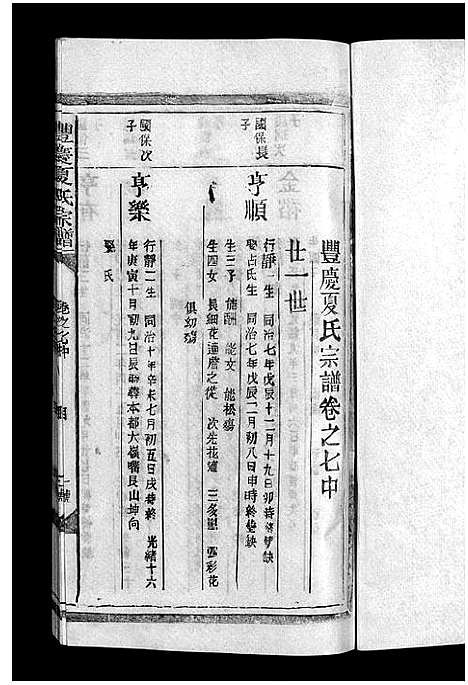 豐慶夏氏宗譜卷之七中
廿一世
國保長子
亨順
行靜一生 同治七年戊辰十二月十九日卯時終缺
娶占氏生 同治七年戊辰二月初八日申時終缺
生三子 能酬 能文 能松殤
生四女 長細花適詹之從 次先花 三多 雲彩花
俱幼殤
國保次子
亨樂
行靜二生 同治十年辛未七月初五日戌時終 光緒十六
年庚寅十月初九日辰時葬本都大嶺嘴艮山坤向
娶氏
豐慶夏氏宗譜
卷之七中